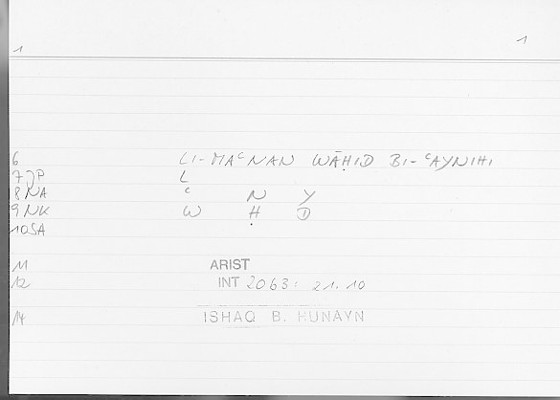 1 1
6 LI-MAᶜNAN WĀḤID BI-ᶜAYNIHI
7 JP L
8 NA ᶜ N Y
9 NK W Ḥ D
10 SA
11 ARIST
12 INT 2063: 21.10
14 ISHAQ B. HUNAYN